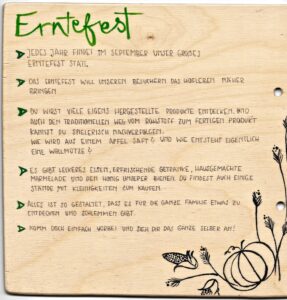 Erntefest
JEDES JAHR FINDET IM SEPTEMBER UNSER GROßES
ERNTEFEST STATT.
DAS ERNTEFEST WILL UNSEREN BESUCHERN DAS HOFLEBEN NÄHER
BRINGEN
DU WIRST VIELE EIGENS HERGESTELLTE PRODUKTE ENTDECKEN UND
AUCH DEM TRADITIONELLEN WEG VOM ROHSTOFF ZUM FERTIGEN PRODUKT
KANNST DU SPIELERISCH NACHVERFOLGEN.
WIE WIRD AUS EINEM APFEL SAFT? UND WIE ENTSTEHT EIGENTLICH
EINE WOLLMÜTZE?
ES GIBT LECKERES ESSEN, ERFRISCHENDE GETRÄNKE, HAUSGEMACHTE
MARMELADE UND DEN HONIG UNSERER BIENEN. DU FINDEST AUCH EINIGE
STÄNDE MIT KLEINIGKEITEN ZUM KAUFEN.
ALLES IST SO GESTALTET, DASS ES FÜR DIE GANZE FAMILIE ETWAS ZU
ENTDECKEN UND SCHLEMMEN GIBT.
KOMM DOCH EINFACH VORBEI UND SIEH DIR DAS GANZE SELBER AN!